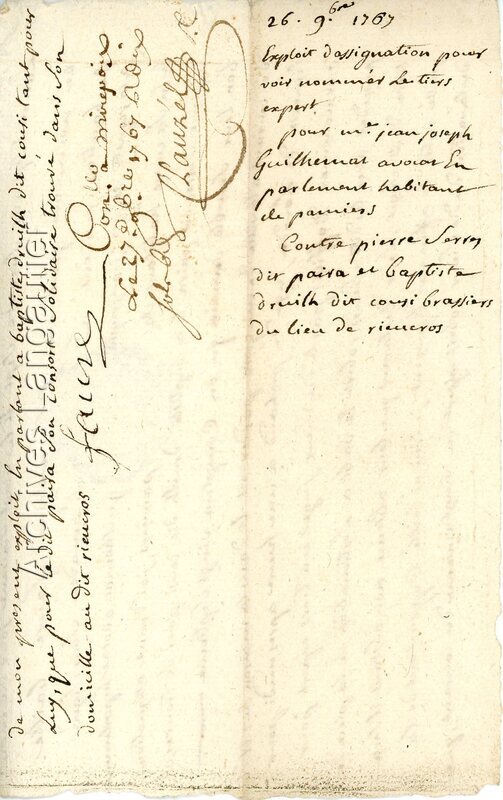 26. 9.bre 1767
Exploit dassignation pour
voir nommér le tiers
expert
pour me. jean joseph
Guilhemat avocat En
parlement habitant
de pamiers
Contre pierre Serres
dit paira et baptiste
druilh dit cousi brassiers
du lieu de rieucros
de mon present exploit, En parlant a baptiste druilh dit cousi tant pour
Luy, que pour le dit paira Son consort Solidaire trouvé dans Son
domicille au dit rieucros
faure
Conlle a mirepoix
Le 27 9bre 1767 a dix
sols
Lauzel
Archives Langaullier